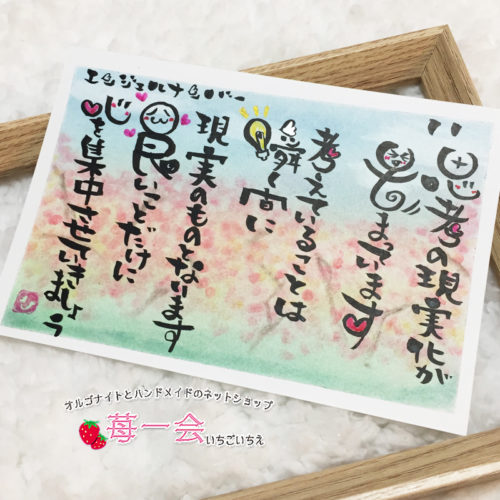 エンジェルナンバー
11
思考の現実化が
始まっています
考えていることは
瞬く間に
現実のものとなります
良いことだけに
心を集中させていきましょう
オルゴナイトとハンドメイドのネットショップ
苺一会いちごいちえ